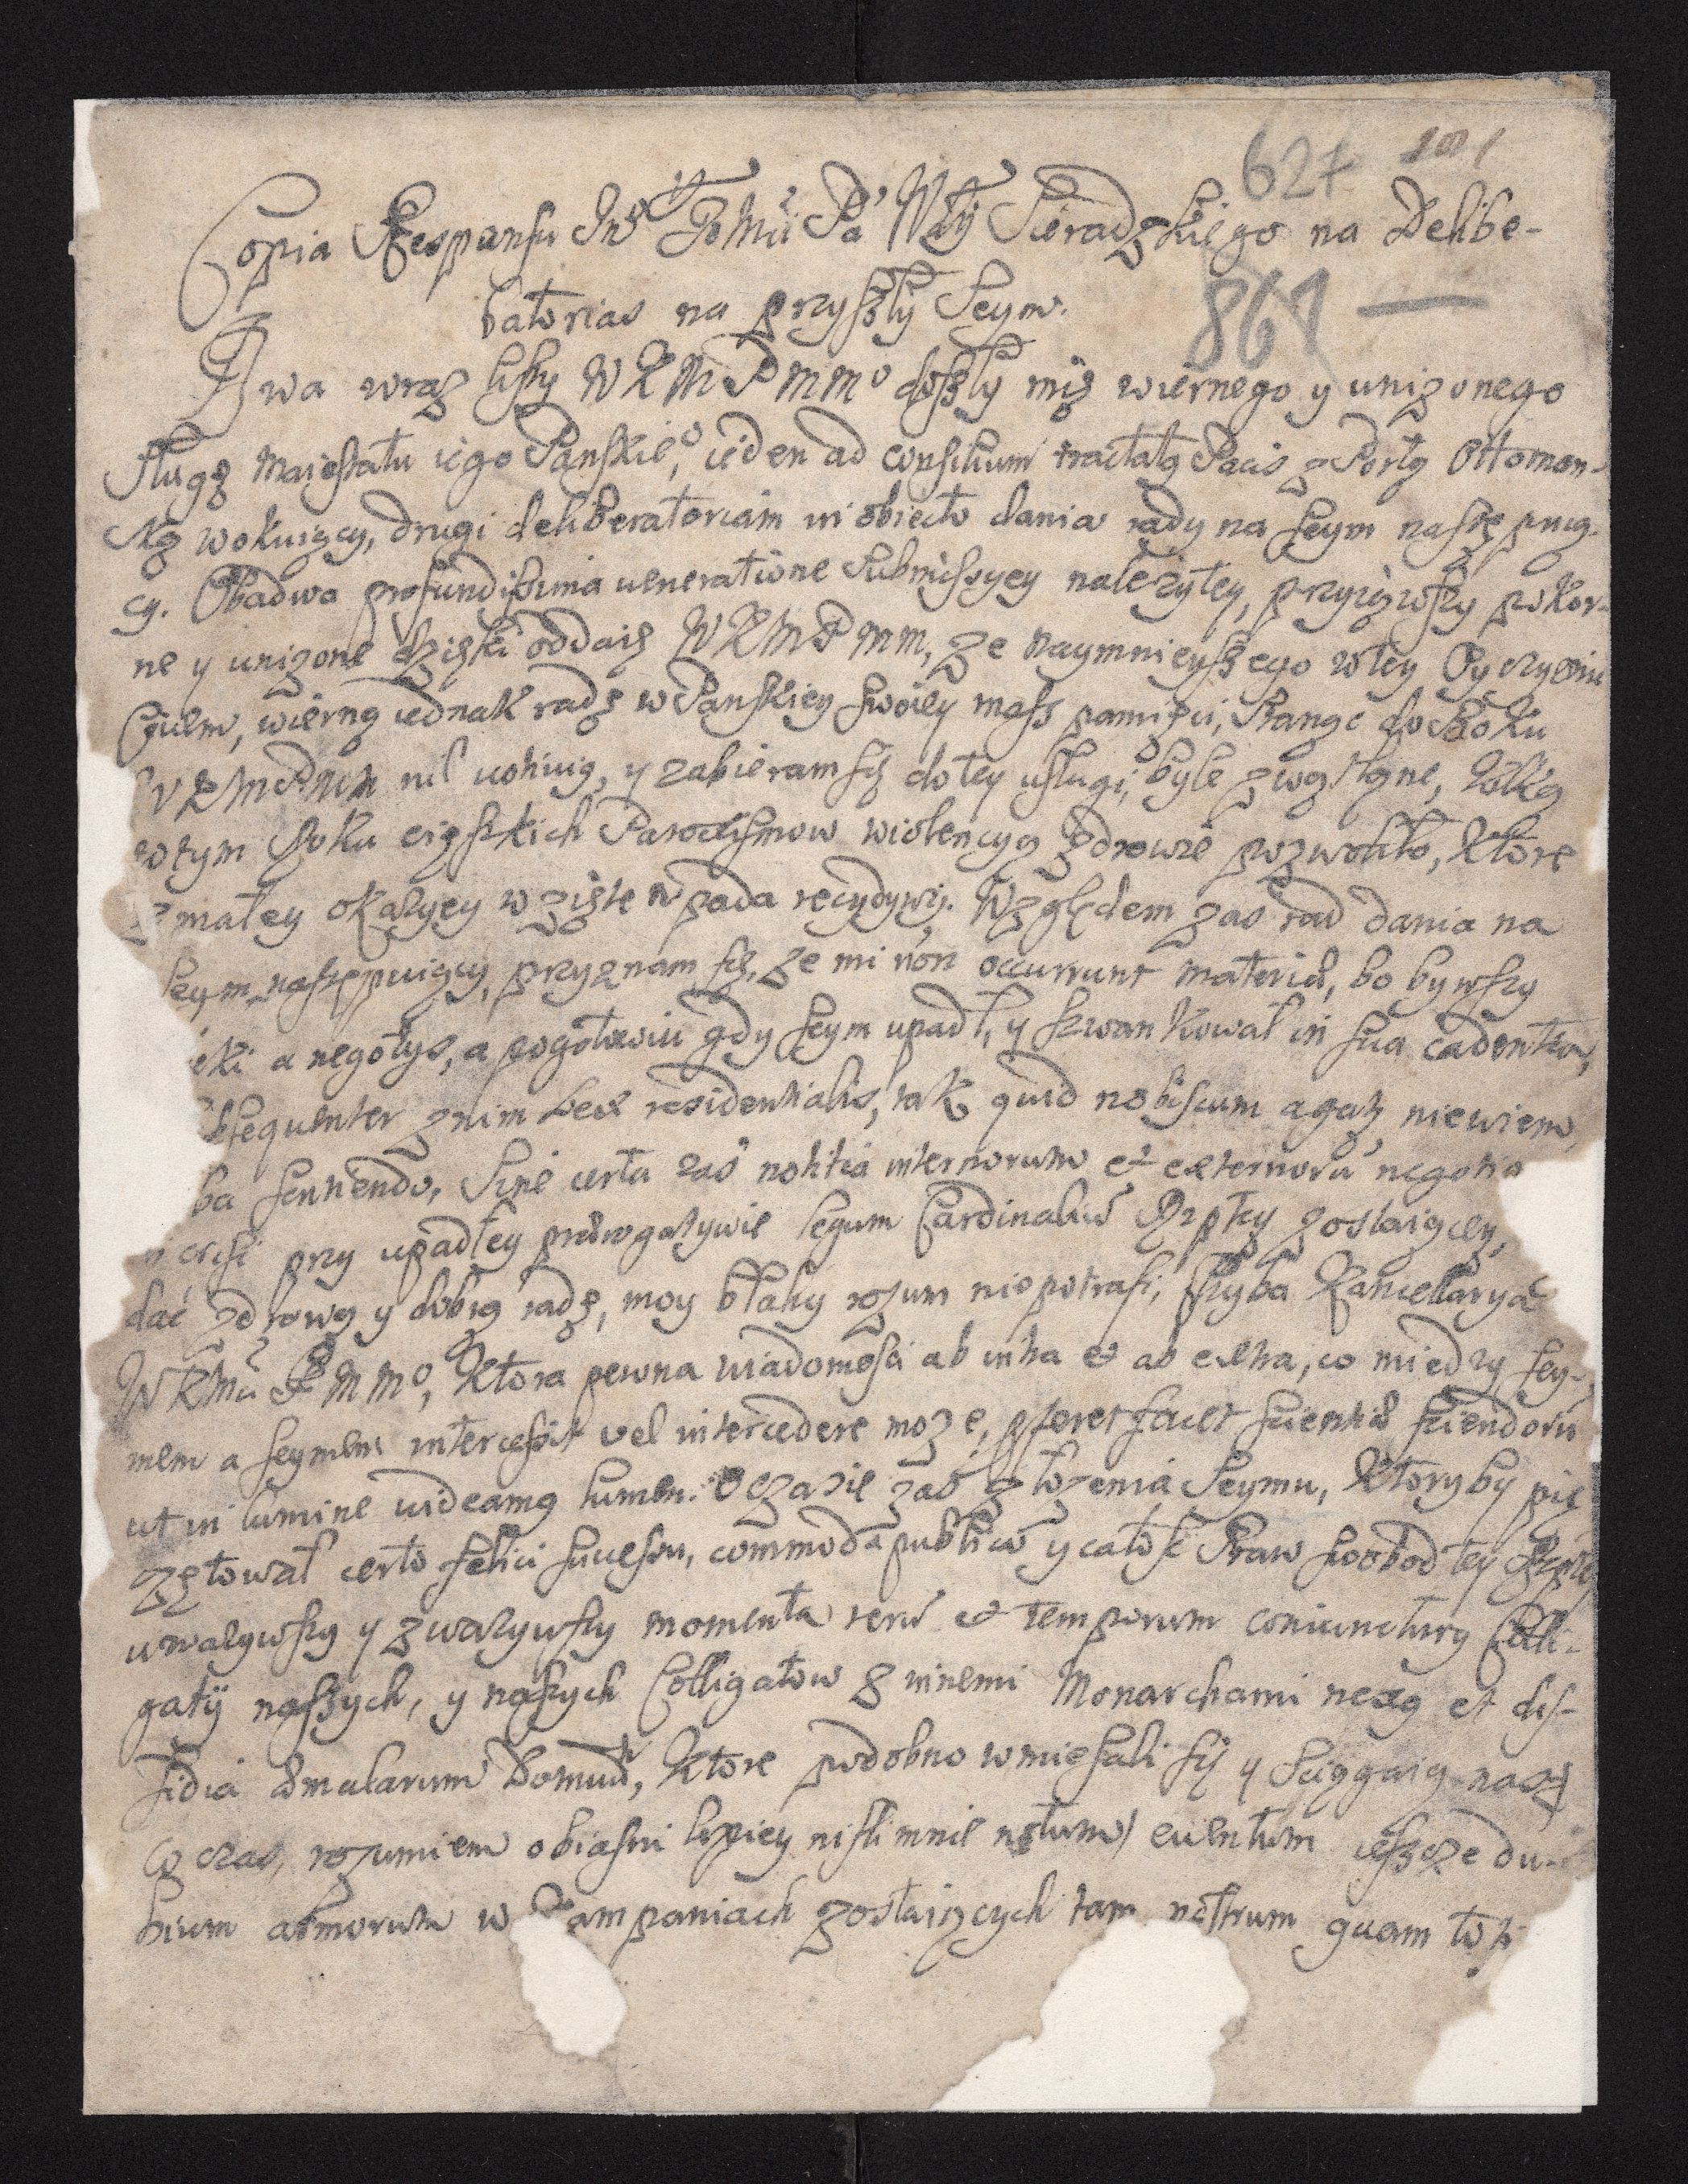 627 101
Copia Responsu Jego Mci Pa Wdy Sieradzkiego na Delibe-
ratorias na przyszły Seym.
867 —
Dwa wraz listy W K M P M mo doszły mię wiernego y unizonego
sługę Maiestatu iego Panskieo, ieden ad consilium tractatq Pacis z Portą Ottoman-
ską wokuiący, drugi deliberatoriam in obiecto dania rady na seym następuią-
cy. Obadwa profundissima veneratione submissyey nalezytey, przyiąwszy pokor-
ne y unizone dzięki oddaię W K M P M M, ze naymnieyszego w tey Oyczyznie
Cziłem, wierną iednak radę w Panskiey swoiey masz pamięci, Stanąc do Boku
W K M P M M nil uohiuię, y zabieram się do tey usługi, byle zwątlone, tolką
w tym roku cięszkich Paroxismow wiolencyą zdrowie pozwoliło, ktore
z małey okazyey wzięte wpada recydywy. Względem zas rad dania na
Seym następuiący, przyznam się, ze mi non occurrunt materiæ, bo bywszy
eki a negotys, a pogotowiu gdy seym upadł, y szwankował in sua cadentia,
bsequenter z nim Lex residentialis, tak quid nobiscum agatq niewiem,
ba sentiendo, Sine certa zas notitia internorum et externoru negotio
przy upadłey prærogatywie legum Cardinaliu Rzptey zostaiącey,
dać zdrową y dobrą radę, moy błahy rozum nie potrafi, chyba Kancellarya
W K Mci P M Mo, ktora pewna wiadomosci ab intra et ab extra, co miedzy sey-
mem a seymem intercessit vel intercedere moze, faciet scientiæ sciendoru
ut in lumine videamq lumen. O czasie zas złozenia Seymu, ktoryby pię
czętował certo felici successu, commoda publica y całosc Praw swobod tey Rzpte
uwazywszy y zwazywszy momenta reru et temporum coniunctury Colli-
gatÿ naszych, y naszych Colligatow z innemi Monarchami nexq et dis-
sidia æmularum Domuu, ktore podobno wmieszali się y sciągaią nas
Co czas, rozumiem obiasni lepiey nisli mnie notum eventum ieszcze du-
bium armorum w Campaniach zostaiących tam nostrum quam